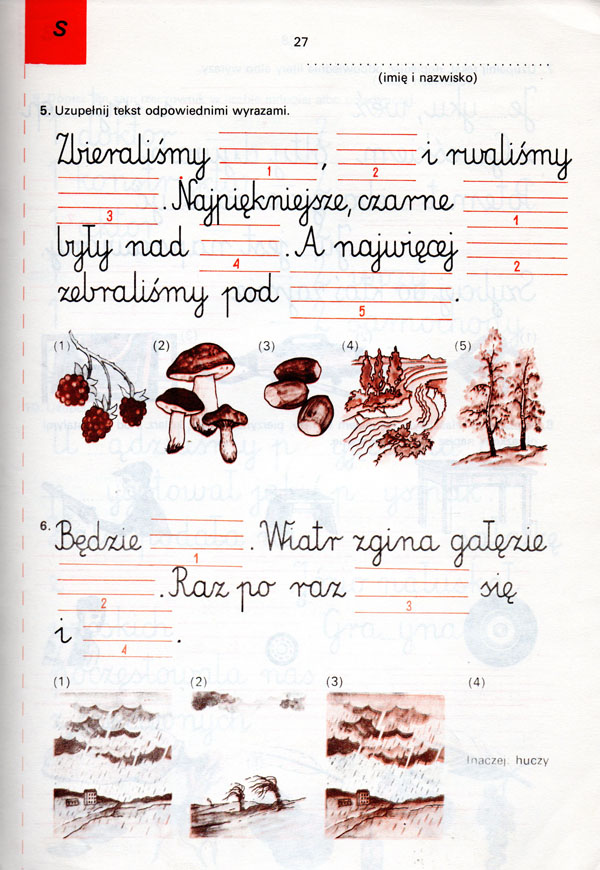 S
27
(imię i nazwisko)
5. Uzupełnij tekst odpowiednimi wyrazami.
Zbieraliśmy 1 , 2 i rwaliśmy
3 . Najpiękniejsze, czarne 1
były nad 4 . A najwięcej 2
zebraliśmy pod 5 .
(1) (2) (3) (4) (5)
6. Będzie 1 . Wiatr zgina gałęzie
2 . Raz po raz 3 się
i 4 .
(1) (2) (3) (4)
Inaczej: huczy